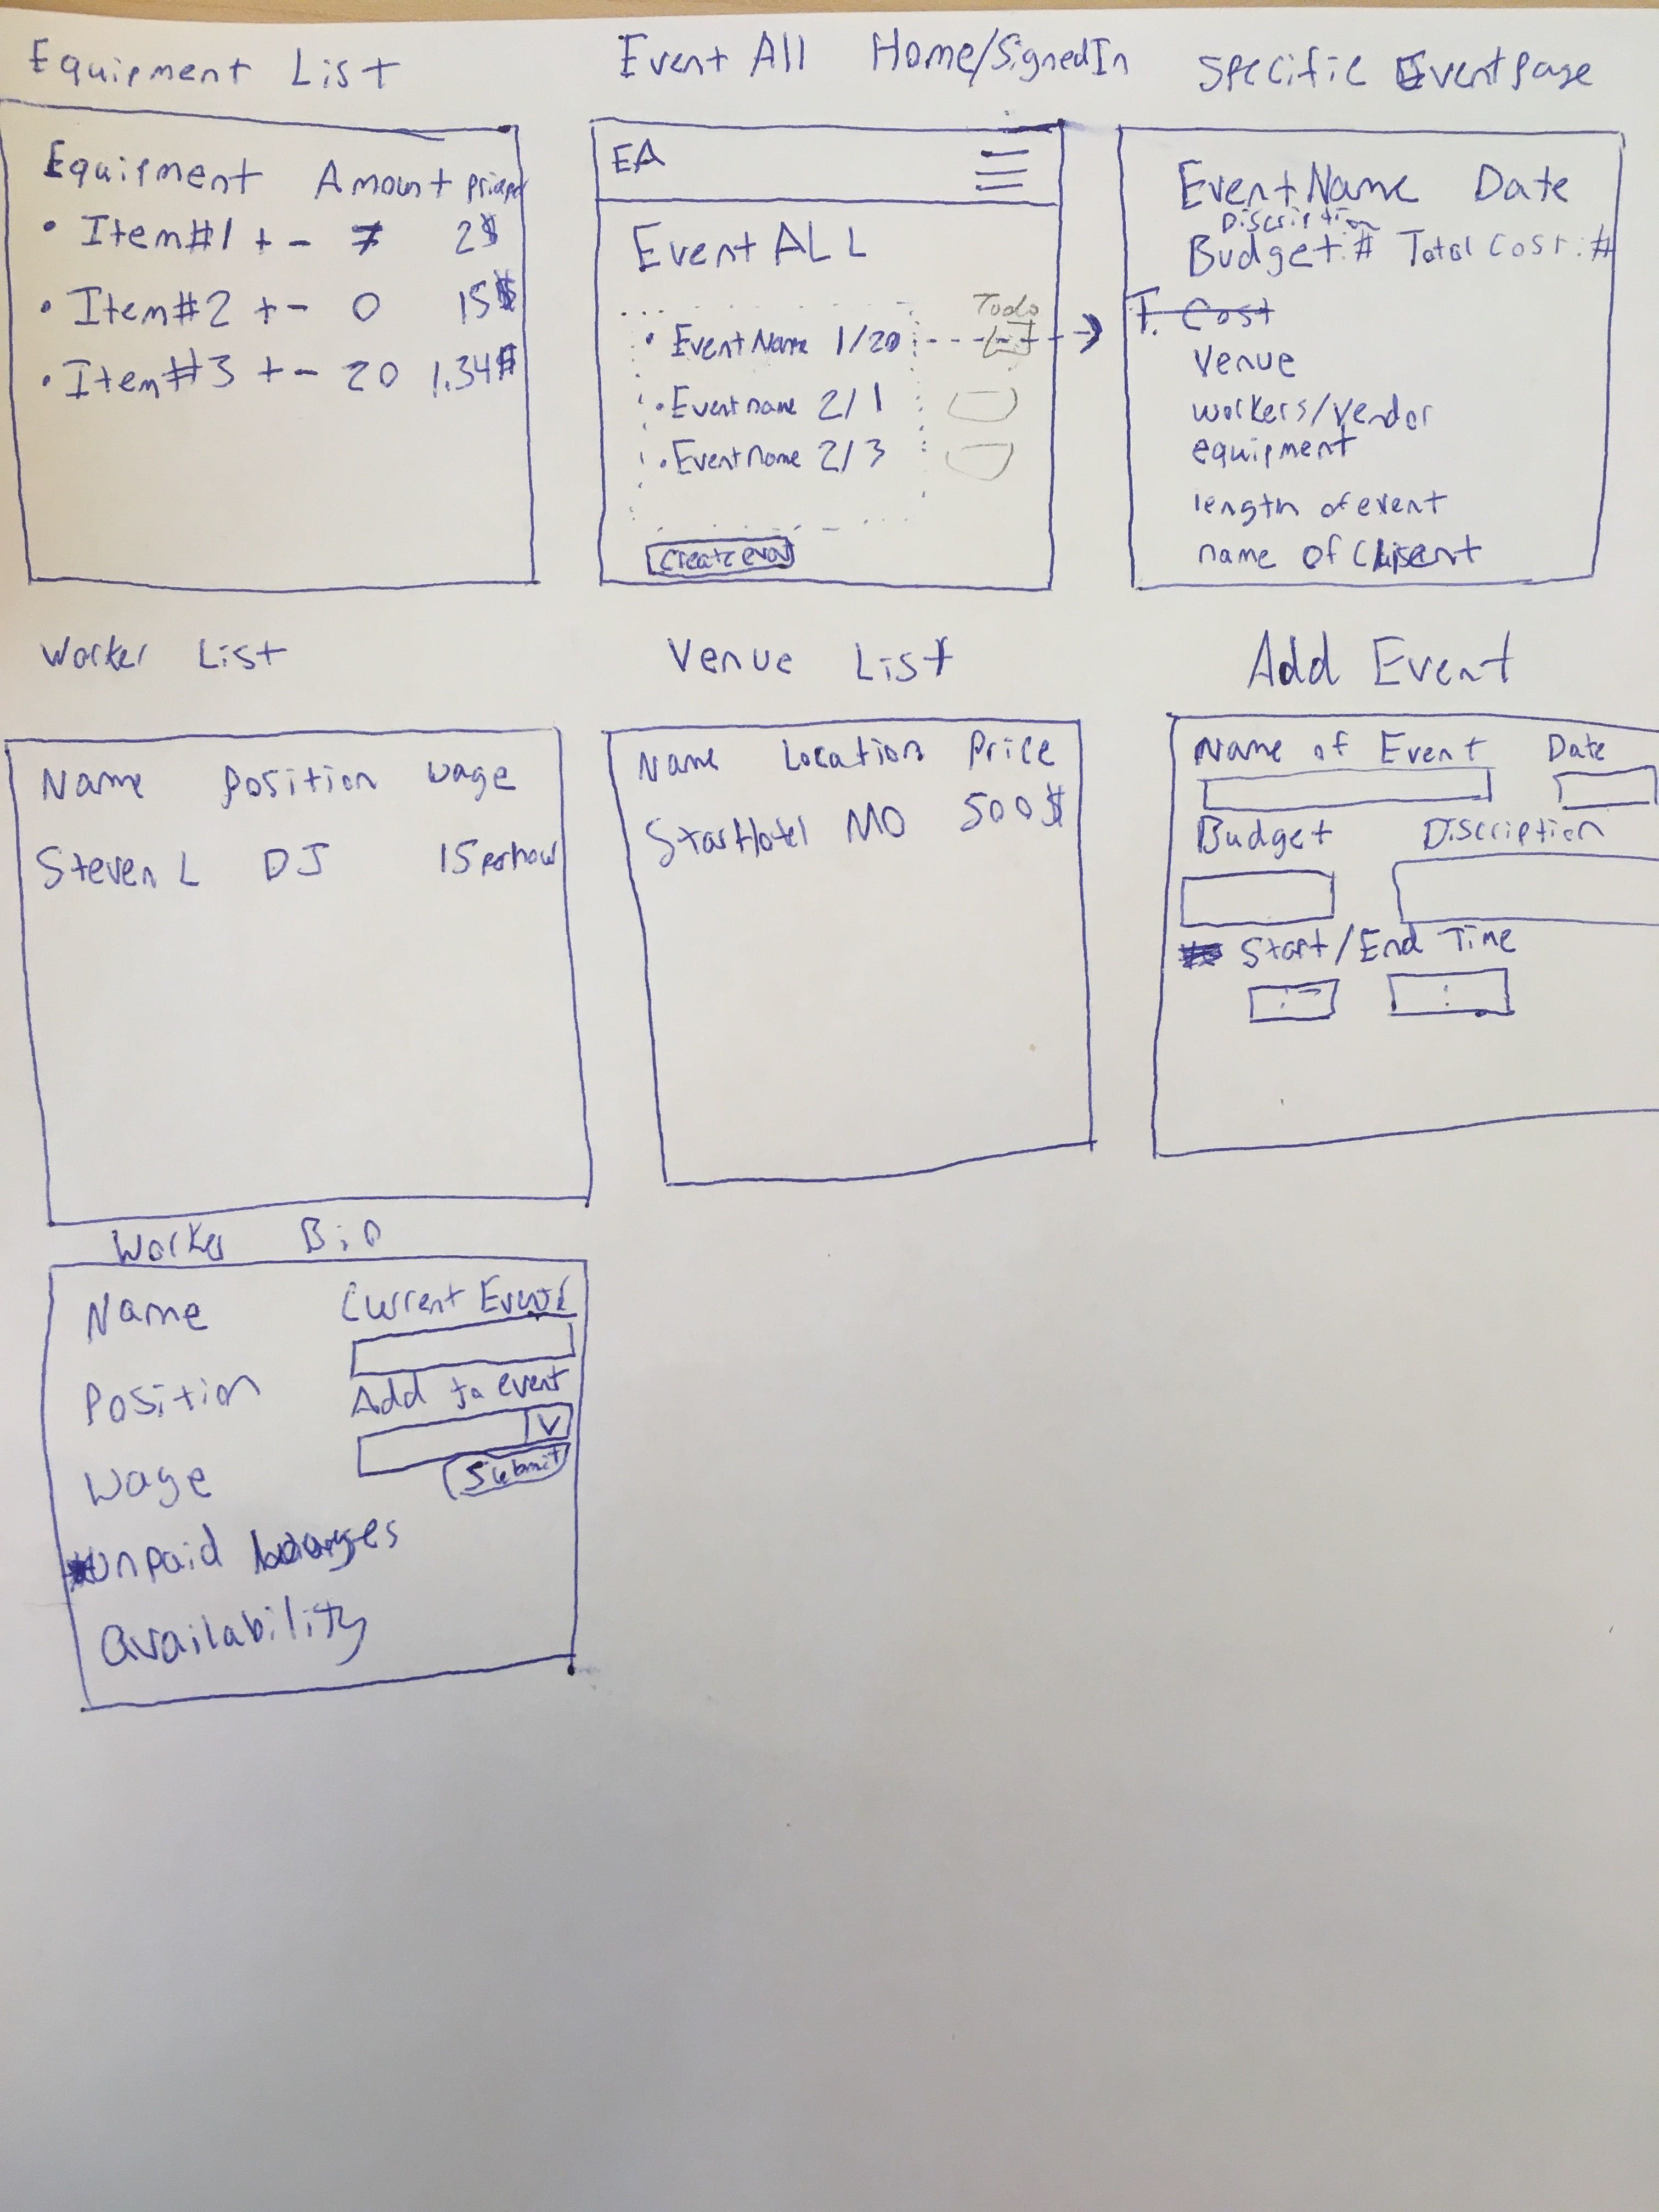 Equipment List
Equipment Amount
• Item#1 + - 7 2$
• Item#2 + - 0 15$
• Item#3 + - 20 1.34$
Event All Home/SignedIn
EA
Event ALL
Todo
• Event Name 1/20
• Event name 2/1
• Event name 2/3
Create event
Specific Event Page
Event Name Date
Discription
Budget:# Total Cost:#
T. Cost
Venue
workers/vendor
equipment
length of event
name of Client
Worker List
Name Position Wage
Steven L DJ 15 per hour
Venue List
Name Location Price
StarHotel MO 500$
Add Event
Name of Event Date
Budget Discription
Start/End Time
: :
Worker Bio
Name Current Event
Position Add to event
V
Wage Submit
Unpaid wages
Availability